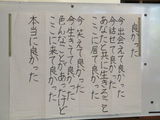 良かった
今出会えて良かった
今話せて良かった
あなたと共に生きること
ここに居て良かった
今笑えて良かった
今生きてて良かった
色んなことがあったけど
ここに来て良かった
本当に良かった